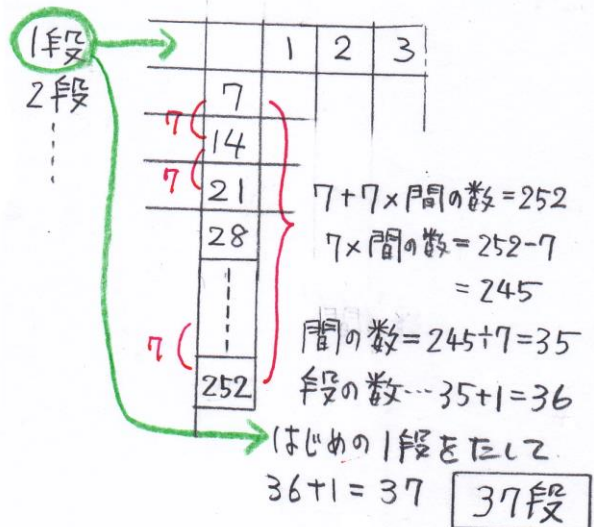 1段
1 2 3
2段
7
7
14
7
21
28
7
252
7+7×間の数=252
7×間の数=252-7
=245
間の数=245÷7=35
段の数…35+1=36
はじめの1段をたして
36+1=37
37段